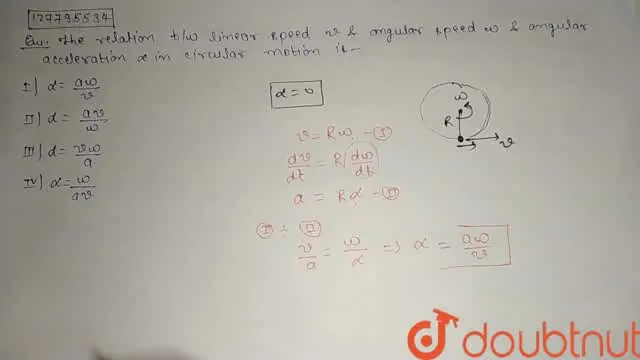 127795534
Qu. The relation b/w linear speed v & angular speed ω & angular
acceleration α in circular motion is -
I) α = aω/v
II) α = av/ω
III) α = vω/a
IV) α = ω/av
α = v
ω
R
v
v = Rω - I
dv/dt = R dω/dt
a = Rα - II
I ÷ II
v/a = ω/α ⇒ α = aω/v
doubtnut